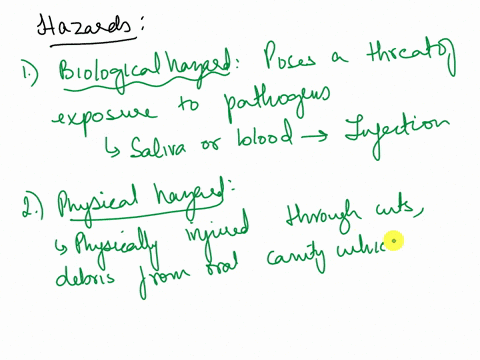 Hazards:
1.) Biological hazard: Poses a threat of
exposure to pathogens
↳ Saliva or blood → Injection
2.) Physical hazard:
↳ Physically injured through cuts,
debris from oral cavity whic